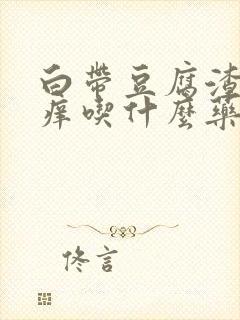 白帶豆腐渣
痒喫什麼藥
佟言